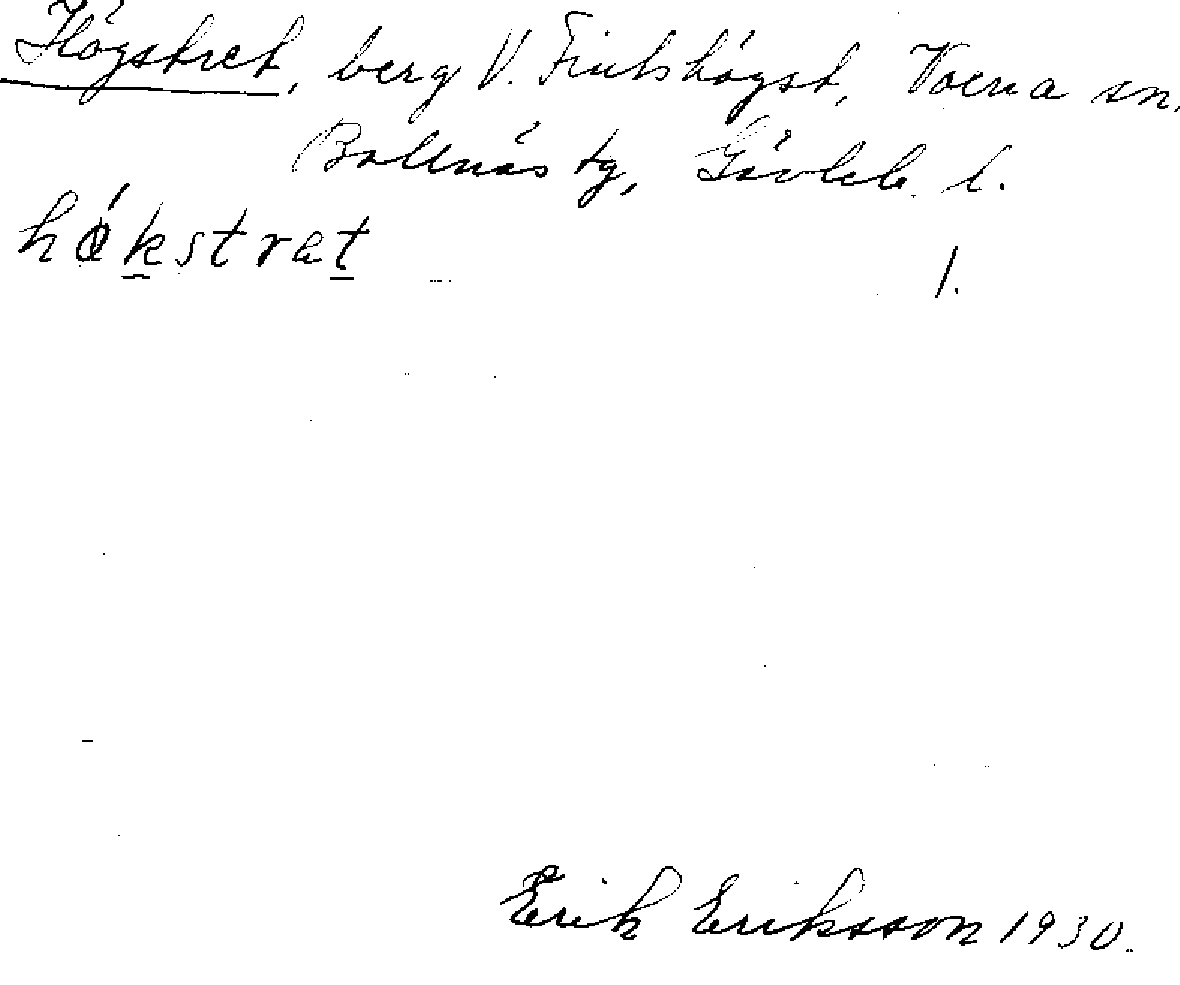 Högstret, berg V. Finshögst, Voxna sn.
Bollnäs tg, Gävleb. l.
hǿkstrat
1.
Erik Eriksson 1930.